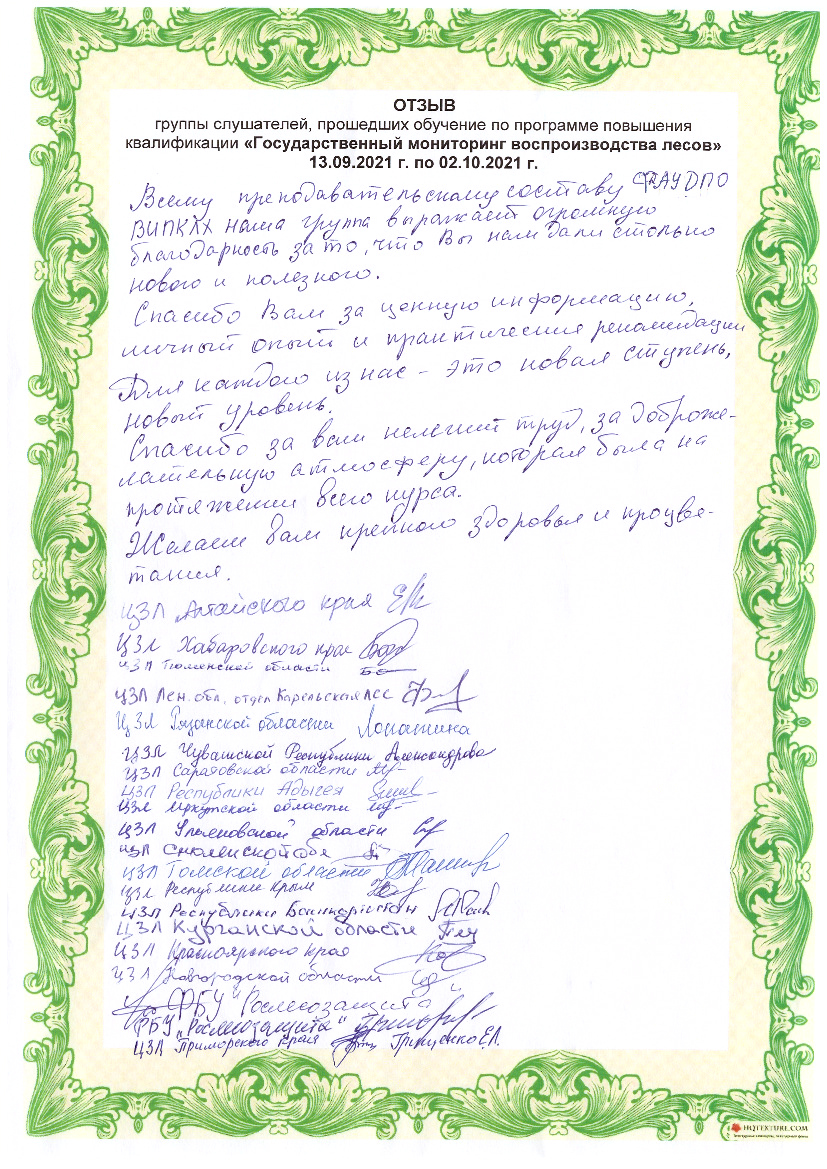 ОТЗЫВ
группы слушателей, прошедших обучение по программе повышения
квалификации «Государственный мониторинг воспроизводства лесов»
13.09.2021 г. по 02.10.2021 г.
Всему преподавательскому составу ФАУ ДПО
ВИПКЛХ наша группа выражает огромную
благодарность за то, что Вы нам дали столько
нового и полезного.
Спасибо Вам за ценную информацию,
личный опыт и практические рекомендации
Для каждого из нас - это новая ступень,
новый уровень.
Спасибо за ваш нелегкий труд, за доброже-
лательную атмосферу, которая была на
протяжении всего курса.
Желаем вам крепкого здоровья и процве-
тания.
ЦЗЛ Алтайского края
ЦЗЛ Хабаровского края
ЦЗЛ Тюменской области
ЦЗЛ Лен. обл. отдел Карельская ЛСС
ЦЗЛ Рязанской области Лопатина
ЦЗЛ Чувашской Республики Александрова
ЦЗЛ Саратовской области
ЦЗЛ Республики Адыгея
ЦЗЛ Иркутской области
ЦЗЛ Ульяновской области
ЦЗЛ Смоленской обл
ЦЗЛ Томской области
ЦЗЛ Республики Крым
ЦЗЛ Республики Башкортостан
ЦЗЛ Курганской области
ЦЗЛ Красноярского края
ЦЗЛ Новгородской области
ФБУ "Рослесозащита"
ФБУ "Рослесозащита"
ЦЗЛ Приморского края Гриценко Е.Л.
HQTEXTURE.COM